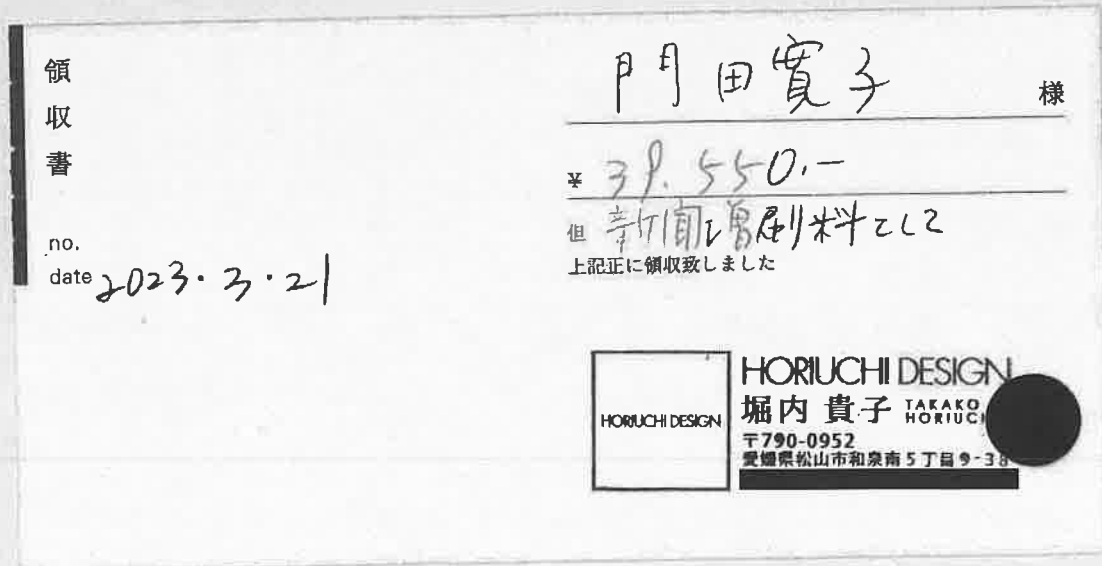 領収書
no.
date 2023・3・21
門田寛子 様
¥ 39.550.-
但 新聞増刷料として
上記正に領収致しました
HORIUCHI DESIGN
HORIUCHI DESIGN
堀内 貴子 TAKAKO
〒790-0952
愛媛県松山市和泉南5丁目9-38